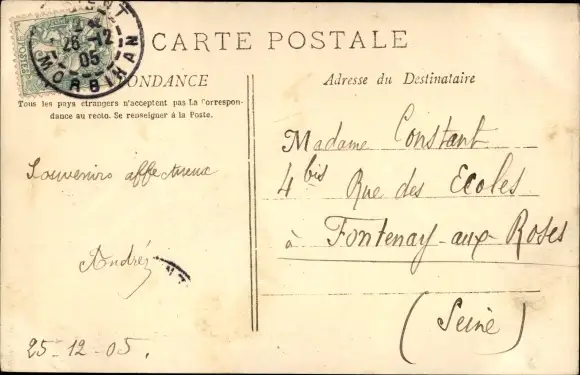 CARTE POSTALE
26 -12
05
MORBIHAN
Tous les pays étrangers n'acceptent pas la Correspon-
dance au recto. Se renseigner à la Poste.
Souvenirs affectueux
André
25-12-05.
Adresse du Destinataire
Madame Constant
4 bis Rue des Ecoles
à Fontenay-aux-Roses
(Seine)